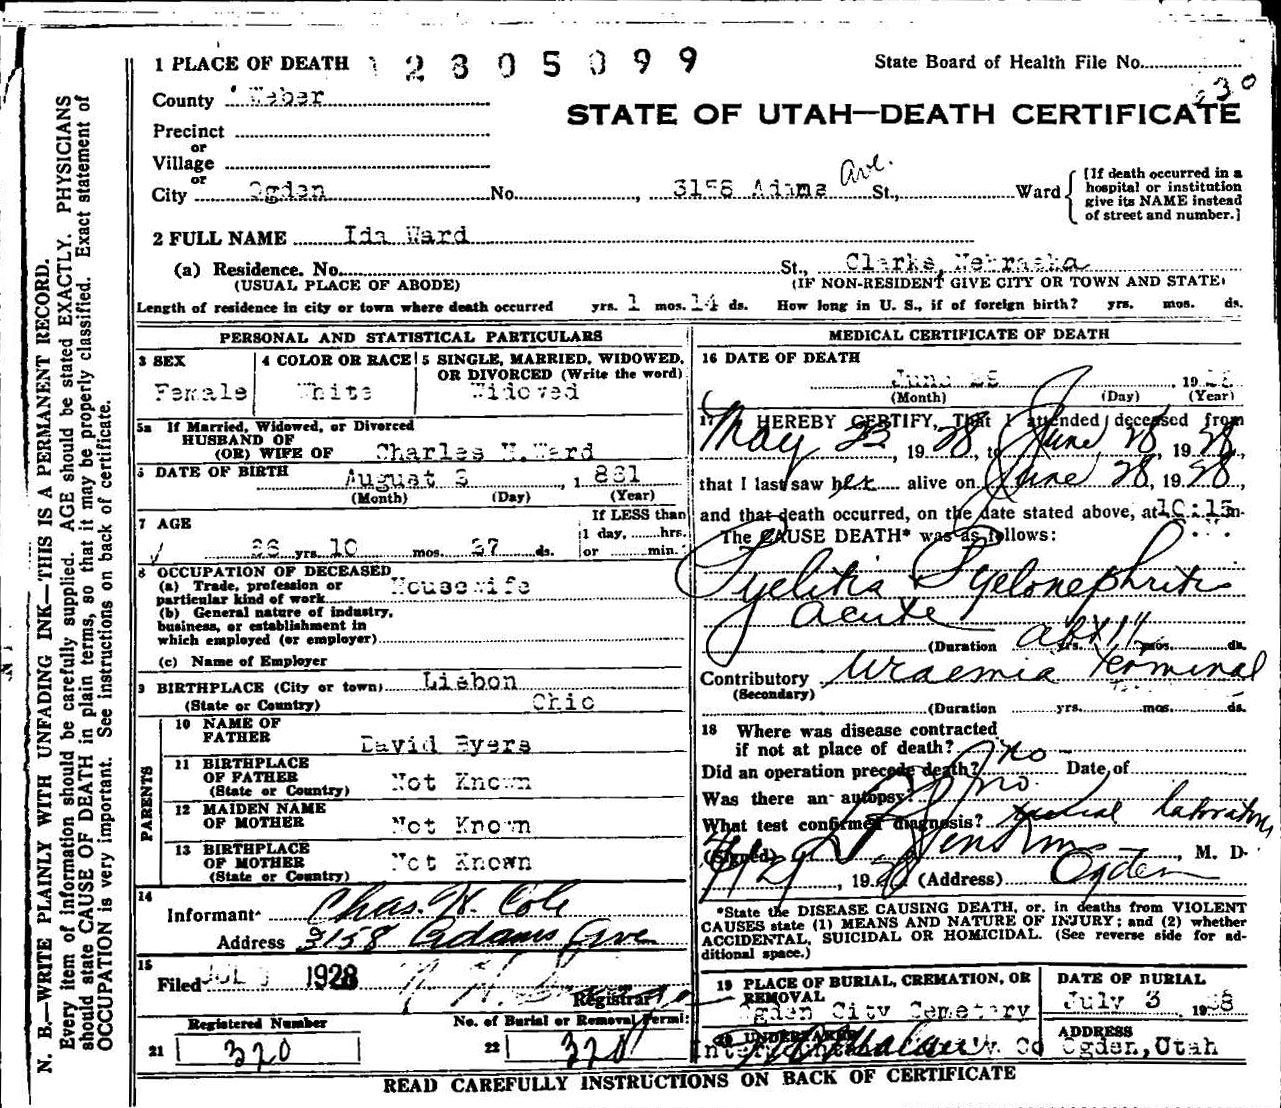 1 PLACE OF DEATH 12305099 State Board of Health File No.
County Weber 230
STATE OF UTAH—DEATH CERTIFICATE
Precinct
or
Village
or
City Ogden No. , 3158 Adams Ave. St., Ward
[If death occurred in a hospital or institution give its NAME instead of street and number.]
2 FULL NAME Ida Ward
(a) Residence. No. St., Clarks, Nebraska
(USUAL PLACE OF ABODE) (IF NON-RESIDENT GIVE CITY OR TOWN AND STATE)
Length of residence in city or town where death occurred yrs. 1 mos. 14 ds. How long in U. S., if of foreign birth? yrs. mos. ds.
PERSONAL AND STATISTICAL PARTICULARS
3 SEX
Female
4 COLOR OR RACE
White
5 SINGLE, MARRIED, WIDOWED, OR DIVORCED (Write the word)
Widowed
5a If Married, Widowed, or Divorced
HUSBAND OF
(OR) WIFE OF Charles H. Ward
6 DATE OF BIRTH August , 1
(Month) (Day) (Year)
7 AGE
yrs. 10 mos. 27 ds.
If LESS than
1 day, hrs.
or min.
8 OCCUPATION OF DECEASED
(a) Trade, profession or
particular kind of work Housewife
(b) General nature of industry,
business, or establishment in
which employed (or employer)
(c) Name of Employer
9 BIRTHPLACE (City or town) Lisbon
(State or Country) Ohio
PARENTS
10 NAME OF
FATHER David Byers
11 BIRTHPLACE
OF FATHER Not Known
(State or Country)
12 MAIDEN NAME
OF MOTHER Not Known
13 BIRTHPLACE
OF MOTHER Not Known
(State or Country)
14
Informant Chas. H. Cole
Address 3158 Adams Ave
15
Filed JUL 1928
Registrar
Registered Number
21 320
No. of Burial or Removal Permit
22 320
MEDICAL CERTIFICATE OF DEATH
16 DATE OF DEATH
June 28 , 1928
(Month) (Day) (Year)
17 I HEREBY CERTIFY, That I attended deceased from
May 23, 1928, to June 28, 1928,
that I last saw her alive on June 28, 1928,
and that death occurred, on the date stated above, at 10:15 m.
The CAUSE DEATH* was as follows:
Pyelitis Pyelonephritis
acute
(Duration yrs. mos. ds.
Contributory Uraemia terminal
(Secondary)
(Duration yrs. mos. ds.
18 Where was disease contracted
if not at place of death?
Did an operation precede death? no Date of
Was there an autopsy? no.
What test confirmed diagnosis? laboratory
(Signed) Jenson , M. D.
, 1928 (Address) Ogden
*State the DISEASE CAUSING DEATH, or, in deaths from VIOLENT
CAUSES state (1) MEANS AND NATURE OF INJURY; and (2) whether
ACCIDENTAL, SUICIDAL OR HOMICIDAL. (See reverse side for ad-
ditional space.)
19 PLACE OF BURIAL, CREMATION, OR
REMOVAL
Ogden City Cemetery
DATE OF BURIAL
July 3 19
20 UNDERTAKER
Co
ADDRESS
Ogden, Utah
READ CAREFULLY INSTRUCTIONS ON BACK OF CERTIFICATE
N. B.—WRITE PLAINLY WITH UNFADING INK—THIS IS A PERMANENT RECORD.
Every item of information should be carefully supplied. AGE should be stated EXACTLY. PHYSICIANS
should state CAUSE OF DEATH in plain terms, so that it may be properly classified. Exact statement of
OCCUPATION is very important. See instructions on back of certificate.